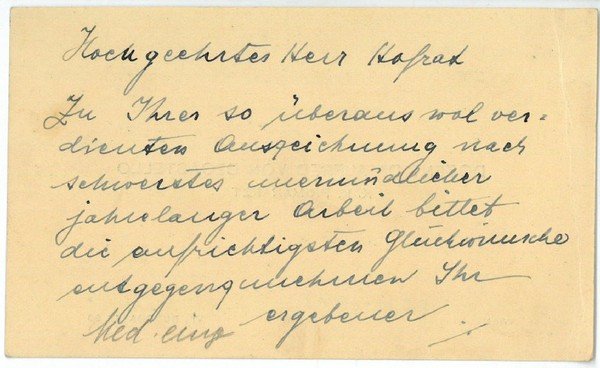 Hochgeehrtes Herr Hofrat
Zu Ihrer so überaus wol ver=
dienten Auszeichnung nach
schwerster unermüdlicher
jahrelanger Arbeit bittet
die aufrichtigsten Glückwünsche
entgegenzunehmen Ihr
ergebener